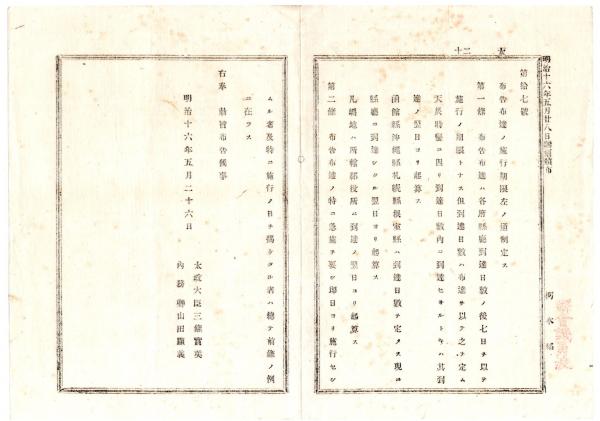 明治十六年五月廿八日
第拾七號
布告布達ノ施行期限左ノ通制定ス
第一條 布告布達ハ各府縣廳到達日數ノ後七日ヲ以テ
施行ノ期限トナス但到達日數ハ布達ヲ以テ之ヲ定ム
天災時變ニ因リ到達日數內ニ到達セサルトキハ其到
達ノ翌日ヨリ起算ス
函館縣沖繩縣札幌縣根室縣ハ到達日數ヲ定メス現ニ
縣廳ニ到達シタル翌日ヨリ起算ス
凡島地ハ所轄郡役所ニ到達ノ翌日ヨリ起算ス
第二條 布告布達ノ特ニ急施ヲ要シ即日ヨリ施行セシ
ムル者及特ニ施行ノ日ヲ揭ケタル者ハ總テ前條ノ例
ニ在ラス
右奉 勅旨布告候事
明治十六年五月二十六日
太政大臣三條實美
內務卿山田顯義